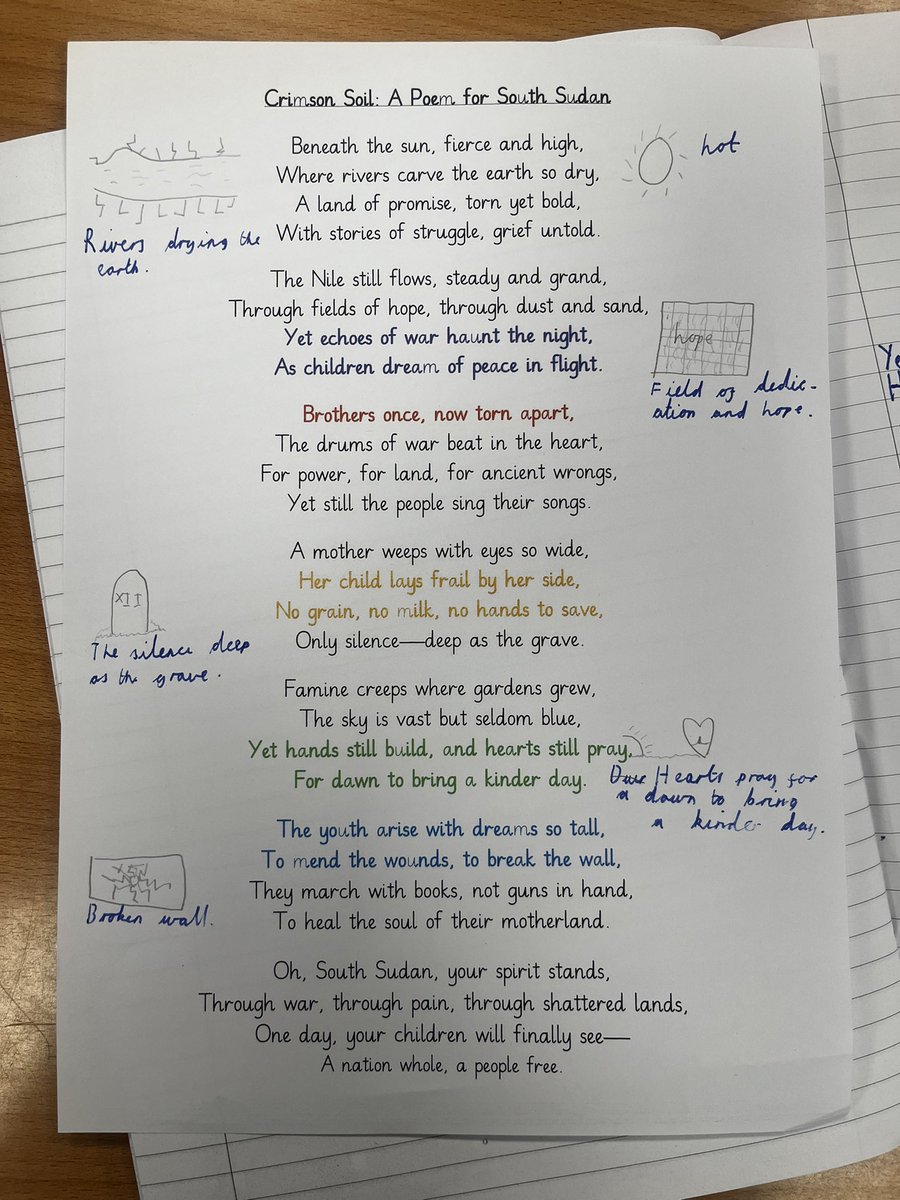 Crimson Soil: A Poem for South Sudan
Beneath the sun, fierce and high,
Where rivers carve the earth so dry,
A land of promise, torn yet bold,
With stories of struggle, grief untold.
hot
Rivers drying the
earth.
The Nile still flows, steady and grand,
Through fields of hope, through dust and sand,
Yet echoes of war haunt the night,
As children dream of peace in flight.
hope
Field of dedic-
ation and hope.
Brothers once, now torn apart,
The drums of war beat in the heart,
For power, for land, for ancient wrongs,
Yet still the people sing their songs.
A mother weeps with eyes so wide,
Her child lays frail by her side,
No grain, no milk, no hands to save,
Only silence—deep as the grave.
XII
The silence deep
as the grave.
Famine creeps where gardens grew,
The sky is vast but seldom blue,
Yet hands still build, and hearts still pray,
For dawn to bring a kinder day.
Hearts pray for
a dawn to bring
a kinder day.
The youth arise with dreams so tall,
To mend the wounds, to break the wall,
They march with books, not guns in hand,
To heal the soul of their motherland.
Broken wall.
Oh, South Sudan, your spirit stands,
Through war, through pain, through shattered lands,
One day, your children will finally see—
A nation whole, a people free.